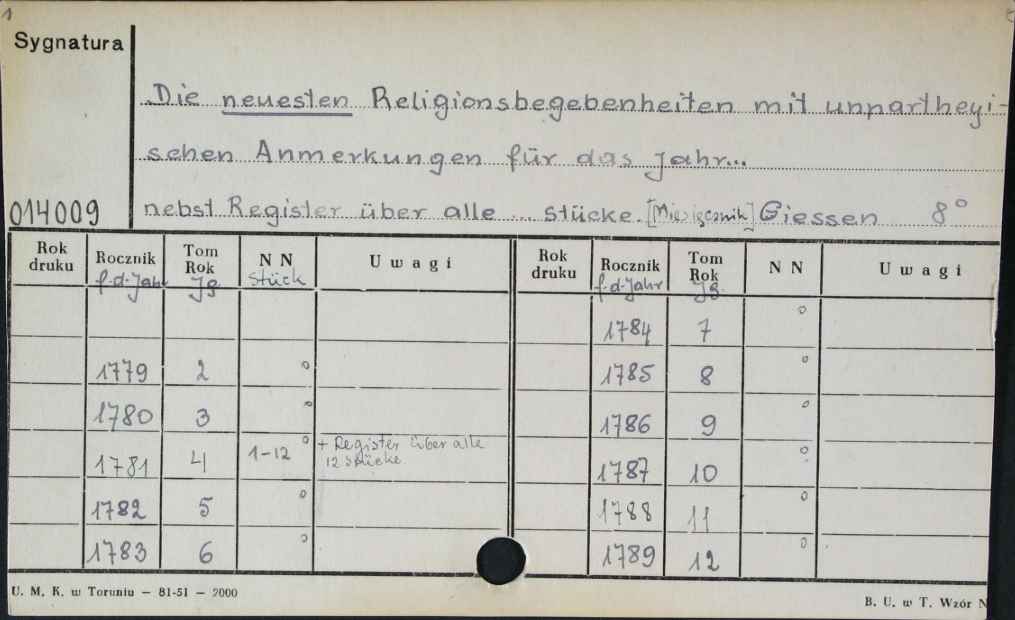 1
Sygnatura
Die neuesten Religionsbegebenheiten mit unpartheyi-
schen Anmerkungen für das Jahr...
014009 nebst Register über alle ... stücke. [Miesięcznik] Giessen 8°
Rok druku Rocznik f.d. Jahr Tom Rok Jg N N Stück Uwagi Rok druku Rocznik f.d. Jahr Tom Rok Jg. N N Uwagi
1784 7 °
1779 2 ° 1785 8 °
1780 3 ° 1786 9 °
1781 4 1-12 ° + Register über alle 12 stücke 1787 10 °
1782 5 ° 1788 11 °
1783 6 ° 1789 12 °
U. M. K. w Toruniu — 81-51 — 2000
B. U. w T. Wzór N